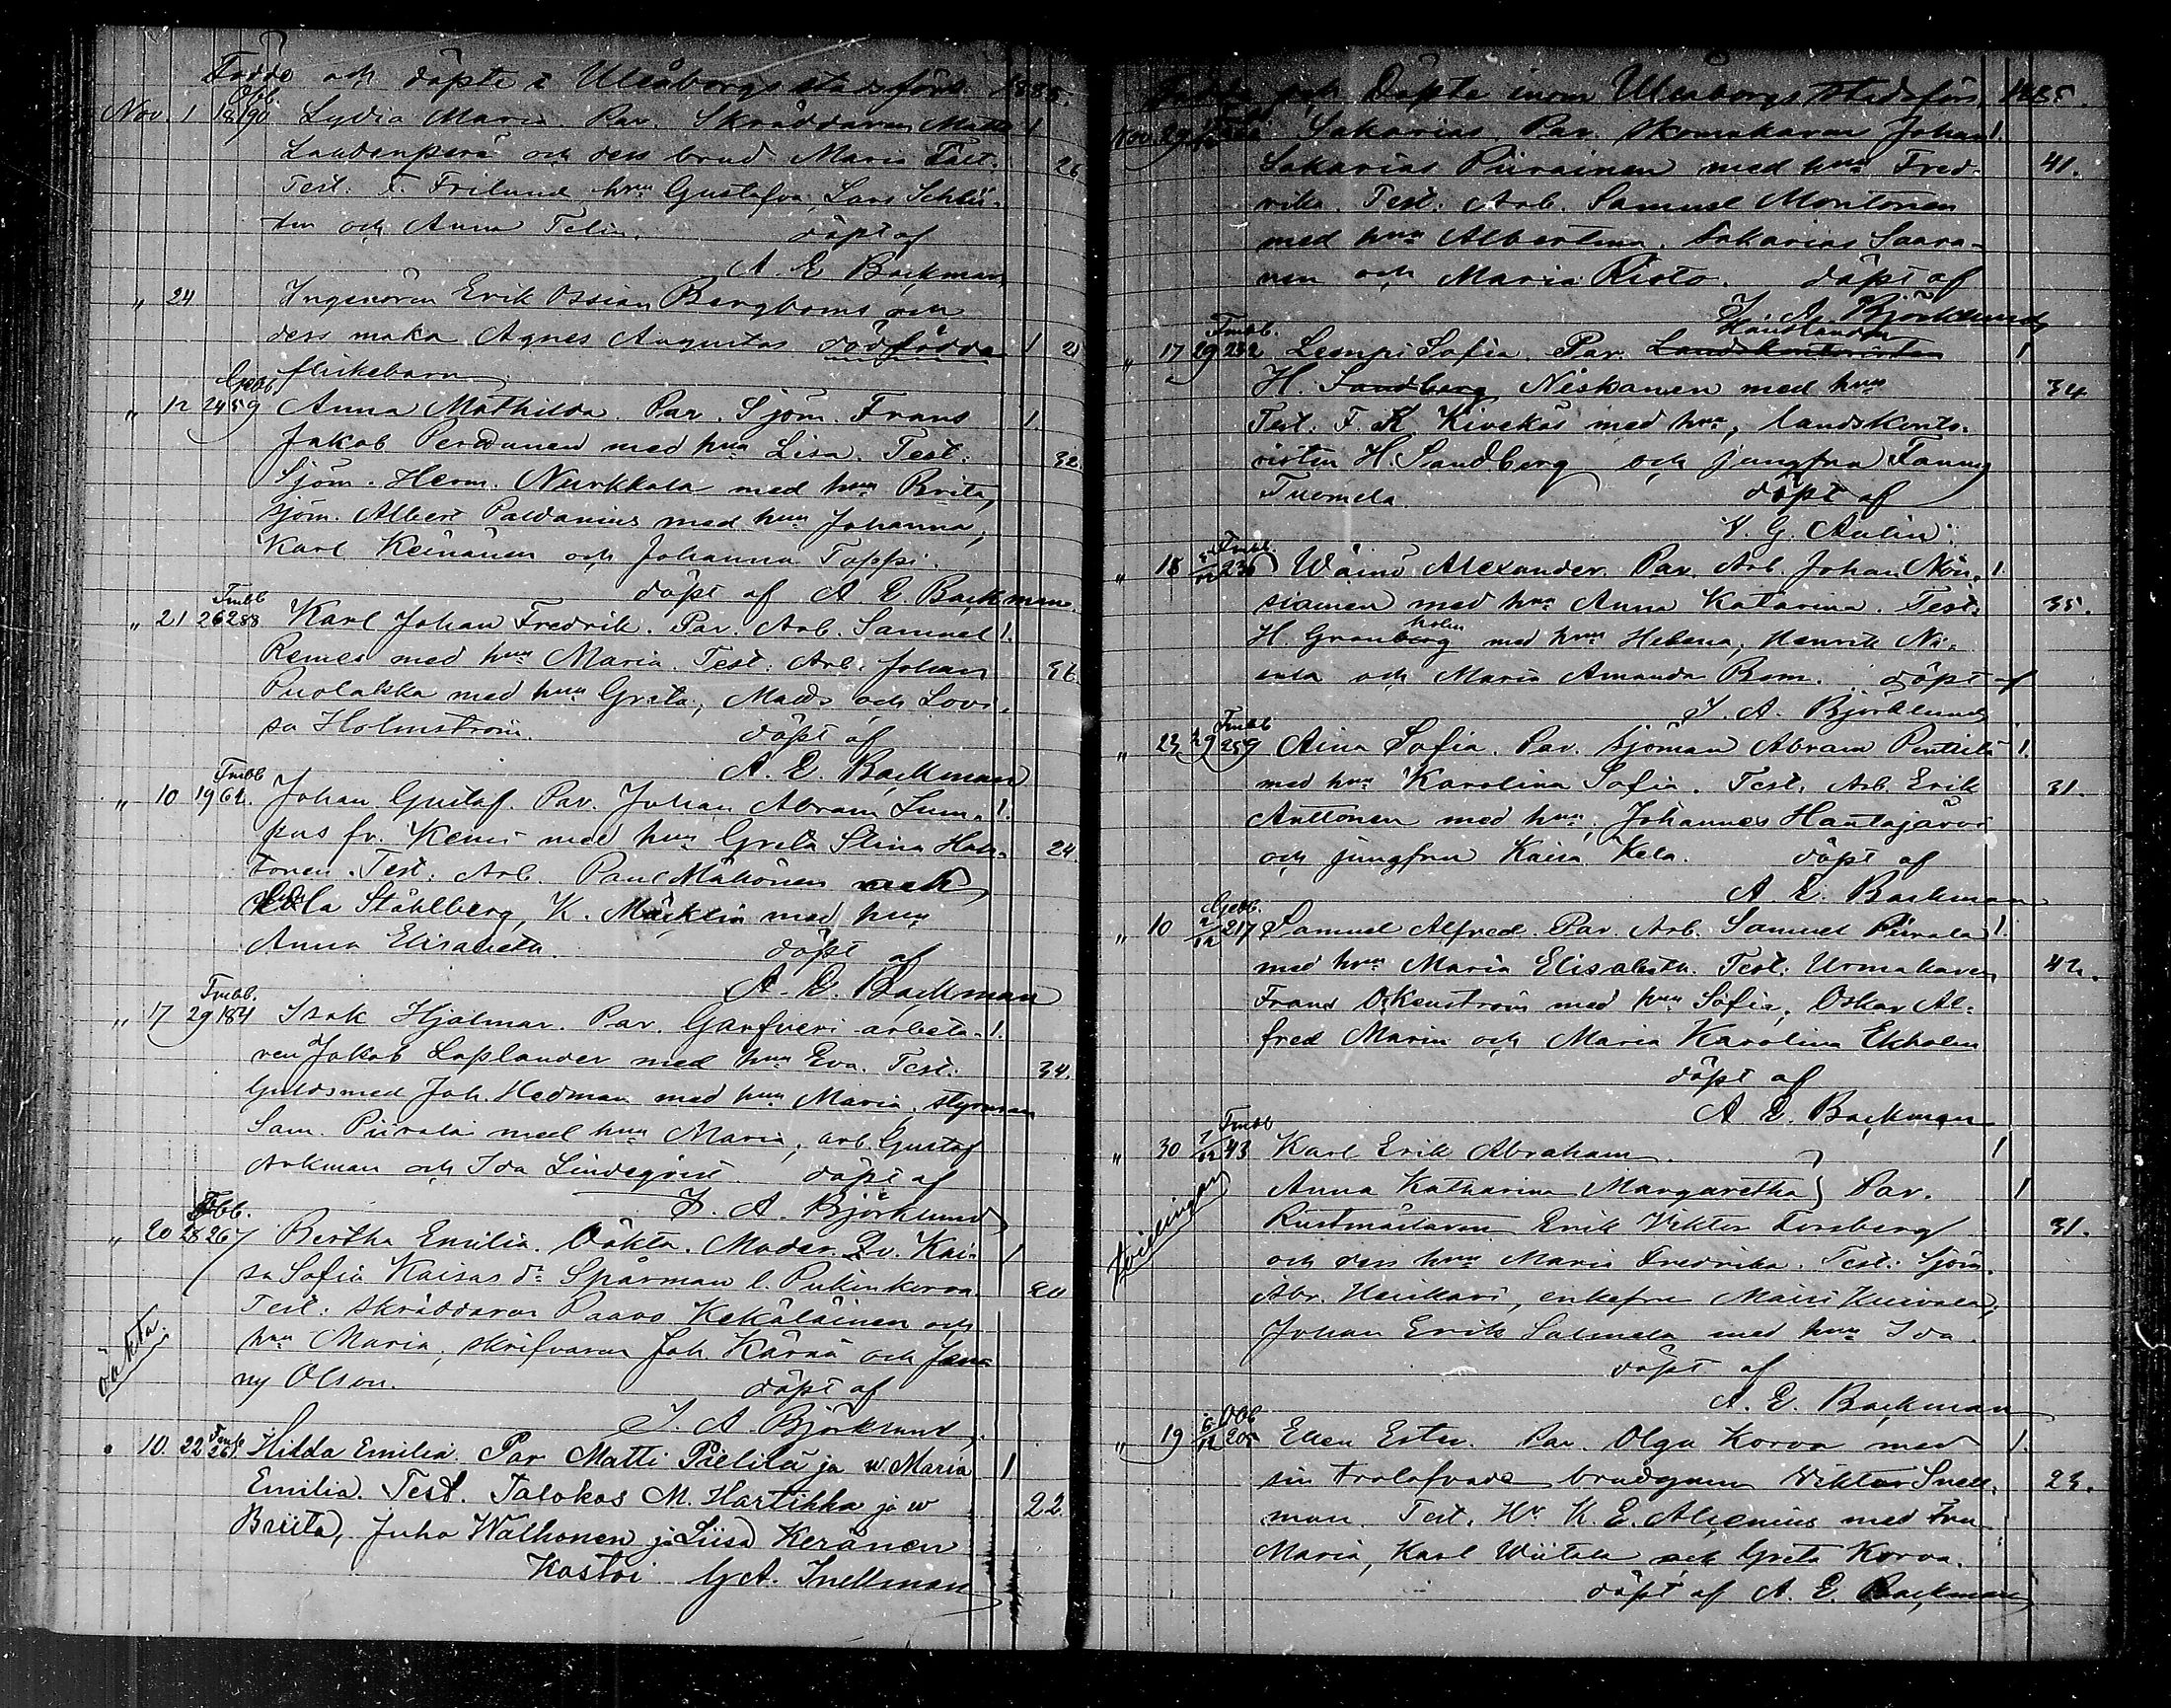 Födde och döpte i Uleåborgs stadsförs. 1885.
Obb.
Nov. 1 18 190 Lydia Maria Par. Skräddaren Matts 1
och dess brud Maria Fält. 26
Test: F. Frilund hru Gustafva, Lars
och Anna Felin. döpt af
A. E. Backman
" 24 Ingenören Erik Ossian Bergboms och
dess maka Agnes Augustas dödfödda 1 21
flickebarn
" 12 24 59 Anna Mathilda. Par. Sjöm. Frans 1.
Jakob med hru Lisa. Test: 32.
Sjöm. Herm. Nurkkala med hru Brita,
sjöm. Albert Paldanius med hru Johanna,
Karl Keinänen och Johanna Toppi.
döpt af A. E. Backman.
Fmbb
" 21 26 288 Karl Johan Fredrik. Par. Arb. Samuel 1.
Remes med hru Maria. Test: Arb. Johan 36.
Puolakka med hru Greta, Matts och Lovi-
sa Holmström. döpt af
A. E. Backman
Fmbb
" 10 19 61. Johan Gustaf. Par. Johan Abram Lum- 1.
pus fr. Kemi med hru Greta Stina Hah- 24
tonen. Test: Arb. Paul Mähönen och
Ståhlberg, K. Mäcklin med hru
Anna Elisabeth. döpt af
A. E. Backman
Fmbb.
" 17 29 184 Isak Hjalmar. Par. Garfveri arbeta- 1.
ren Jakob Laplander med hru Eva. Test. 34.
Guldsmed Joh. Hedman med hru Maria, styrman
Sam. Piirala med hru Maria, arb. Gustaf
Arkman och Ida Lindeqvist. döpt af
J. A. Björklund
" 20 28 267 Bertha Emilia. Oäkta. Moder. Qv. Kai- 1
sa Sofia Kaisas dr Spårman l. Pukinkorva. 20
Test: skräddaren Paavo Kekäläinen och
oäkta.
hru Maria, skrifvaren Joh. Kärnä och Fan-
ny Olson. döpt af
J. A. Björklund.
" 10. 22 261 Hilda Emilia. Par Matti Pielilä ja w. Maria 1
Emilia. Test. Talokas M. Hartikka ja w 22.
Briita, Juho Walhonen ja Liisa Keränen
Kastoi G. A. Snellman
Födde och Döpte inom Uleåborgs Stadsförs. 1885.
Nov. 29 Sakarias Par. skomakaren Johan 1.
Sakarias Piirainen med hru Fred- 41.
rika. Test: Arb. Samuel Montonen
med hru Albertina. Sakarias Saara-
nen och Maria Risto. döpt af
J. A. Björklund
Fmbb.
" 17 29 232 Lempi Sofia. Par. Landskontoristen 1
H. Sandberg Niskanen med hru 34
Test. F. K. Kivekäs med hru, landskonto-
risten H. Sandberg och jungfru Fanny
Tuomela. döpt af
V. G. Aulin.
Fmbb.
" 18 Wäinö Alexander. Par. Arb. Johan Nou- 1.
siainen med hru Anna Katarina. Test: 35.
holm
H. Granberg med hru Helena, Henrik Ni-
och Maria Amanda Rom. döpt af
J. A. Björklund
Fmbb
" 23 259 Aina Sofia. Par. sjöman Abram Penttilä 1.
med hru Karolina Sofia. Test. Arb. Erik 31.
Anttonen med hru, Johannes Hautajärvi
och jungfru Kaisa Kela. döpt af
A. E. Backman
" 10 2/12 217 Samuel Alfred. Par. Arb. Samuel Piirala 1.
med hru Maria Elisabeth. Test: Urmakaren
42.
Frans Okenström med hru Sofia, Oskar Al-
fred Marin och Maria Karolina Ekholm
döpt af
A. E. Backman
Fmbb
" 30 7/12 43 Karl Erik Abraham 1
Anna Katharina Margaretha } Par. 1
tvillingar
Rustmästaren Erik Viktor Forsberg 31.
och dess hru Maria Fredrika. Test: Sjöm.
Abr. Heickari, enkefru Maria
Johan Erik Salmela med hru Ida.
döpt af
A. E. Backman
Obb
" 19 6/12 205 Ellen Ester. Par. Olga Korva med 1.
sin trolofvade brudgum Viktor Snell- 23.
man. Test. Hr K. E. Alcenius med Fru
Maria, Karl Wiitala och Greta Korva.
döpt af A. E. Backman